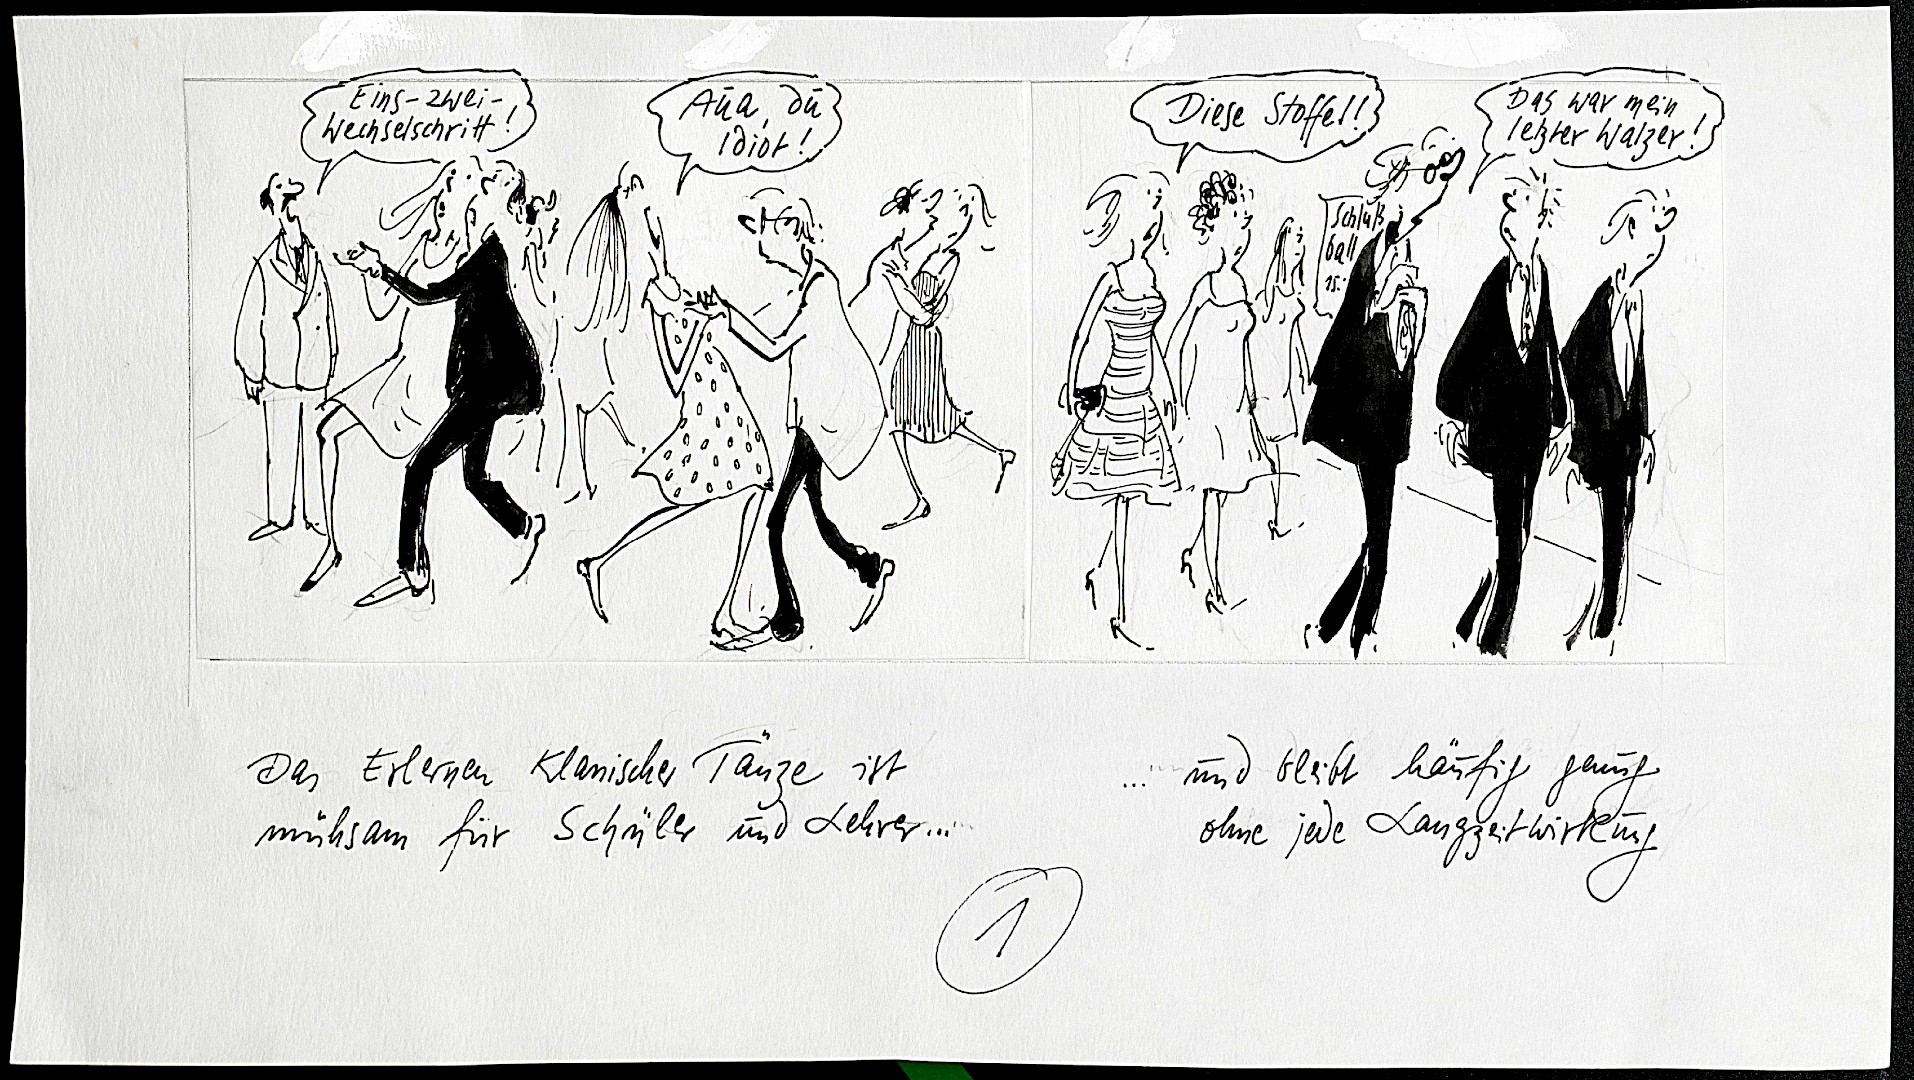 Eins-zwei-
Wechselschritt!
Aua, du
Idiot!
Diese Stoffel!
Das war mein
letzter Walzer!
Schluß
ball
15.
Das Erlernen klassischer Tänze ist
mühsam für Schüler und Lehrer...
... und bleibt häufig genug
ohne jede Langzeitwirkung
1